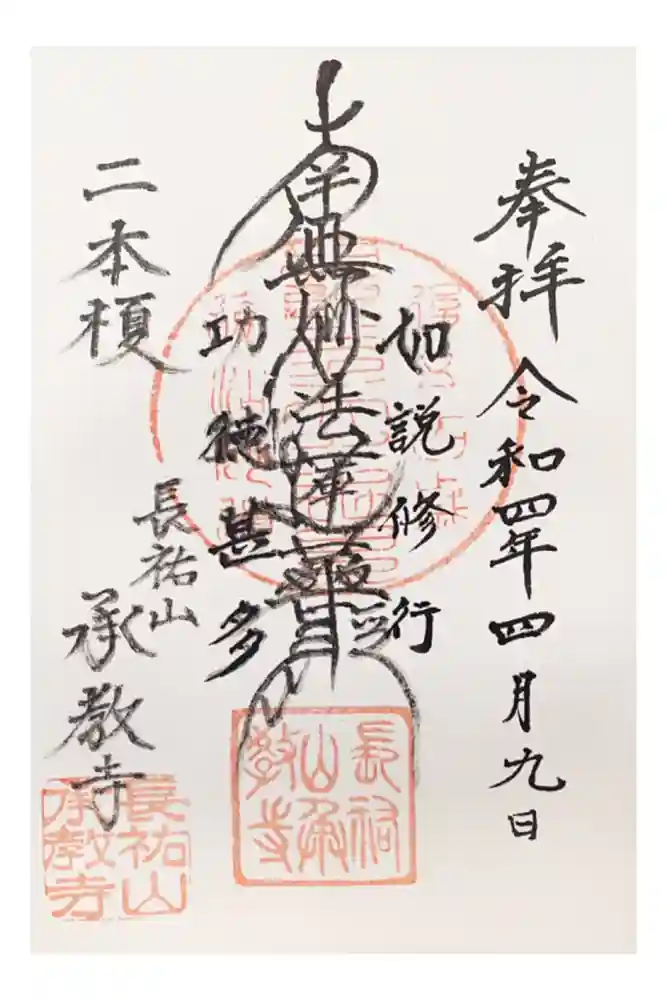 奉拝 令和四年四月九日
如説修行
南無妙法蓮華経
功徳甚多
二本榎
長祐山
承教寺
長祐山承教寺
長祐山
承教寺